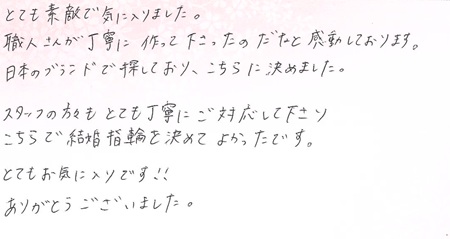 とても素敵で気に入りました。
職人さんが丁寧に作って下さったのだなと感動しております。
日本のブランドで探しており、こちらに決めました。
スタッフの方々もとても丁寧にご対応して下さり
こちらで結婚指輪を決めてよかったです。
とてもお気に入りです!!
ありがとうございました。